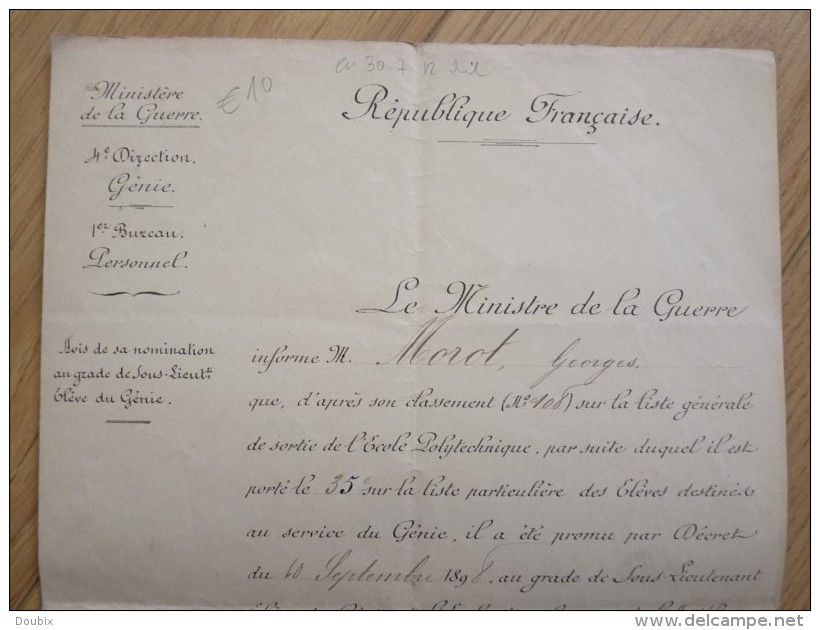 €10
en 30-7 12
Ministère
de la Guerre.
4e Direction.
Génie.
1er Bureau.
Personnel.
Avis de sa nomination
au grade de Sous-Lieutt
Elève du Génie.
République Française.
Le Ministre de la Guerre
informe M. Morot, Georges.
que, d'après son classement (No 108) sur la liste générale
de sortie de l'Ecole Polytechnique, par suite duquel il est
porté le 35e sur la liste particulière des Elèves destinés
au service du Génie, il a été promu par Décret
du 10 Septembre 1898, au grade de Sous-Lieutenant
Doubix
delcampe.net